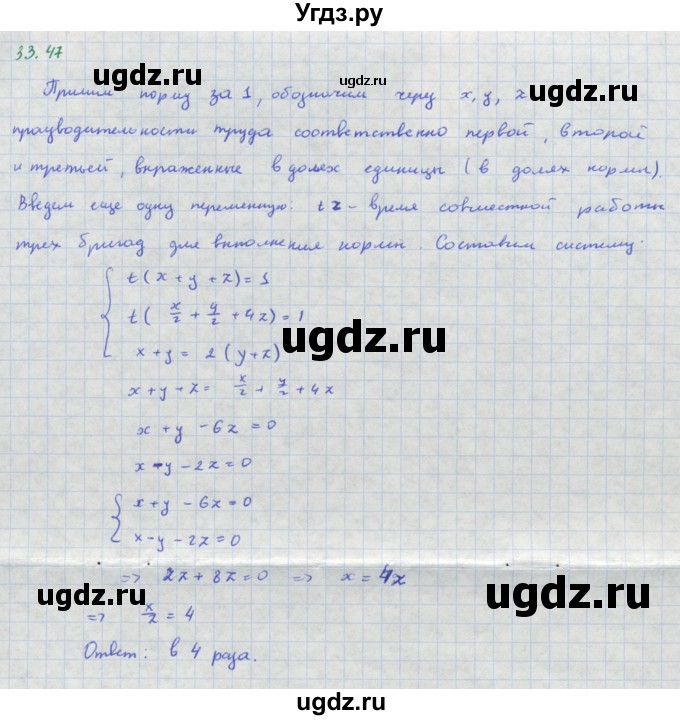 Угдз.ру
33.47
ugdz.ru ugdz.ru ugdz.ru
Примем норму за 1, обозначим через x, y, z
производительности труда соответственно первой, второй
и третьей, выраженные в долях единицы (в долях нормы).
Введем еще одну переменную. t - время совместной работы
трех бригад для выполнения нормы. Составим систему:
t(x+y+z)=1
t(x/2 + y/2 + 4z)=1
x+y = 2(y+z)
ugdz.ru
x+y+z = x/2 + y/2 + 4z
x+y-6z=0
x-y-2z=0
x+y-6z=0
x-y-2z=0
=> 2x+8z=0 => x=4z
ugdz.ru ugdz.ru
=> x/z = 4
Ответ: в 4 раза.
ugdz.ru
ugdz.ru